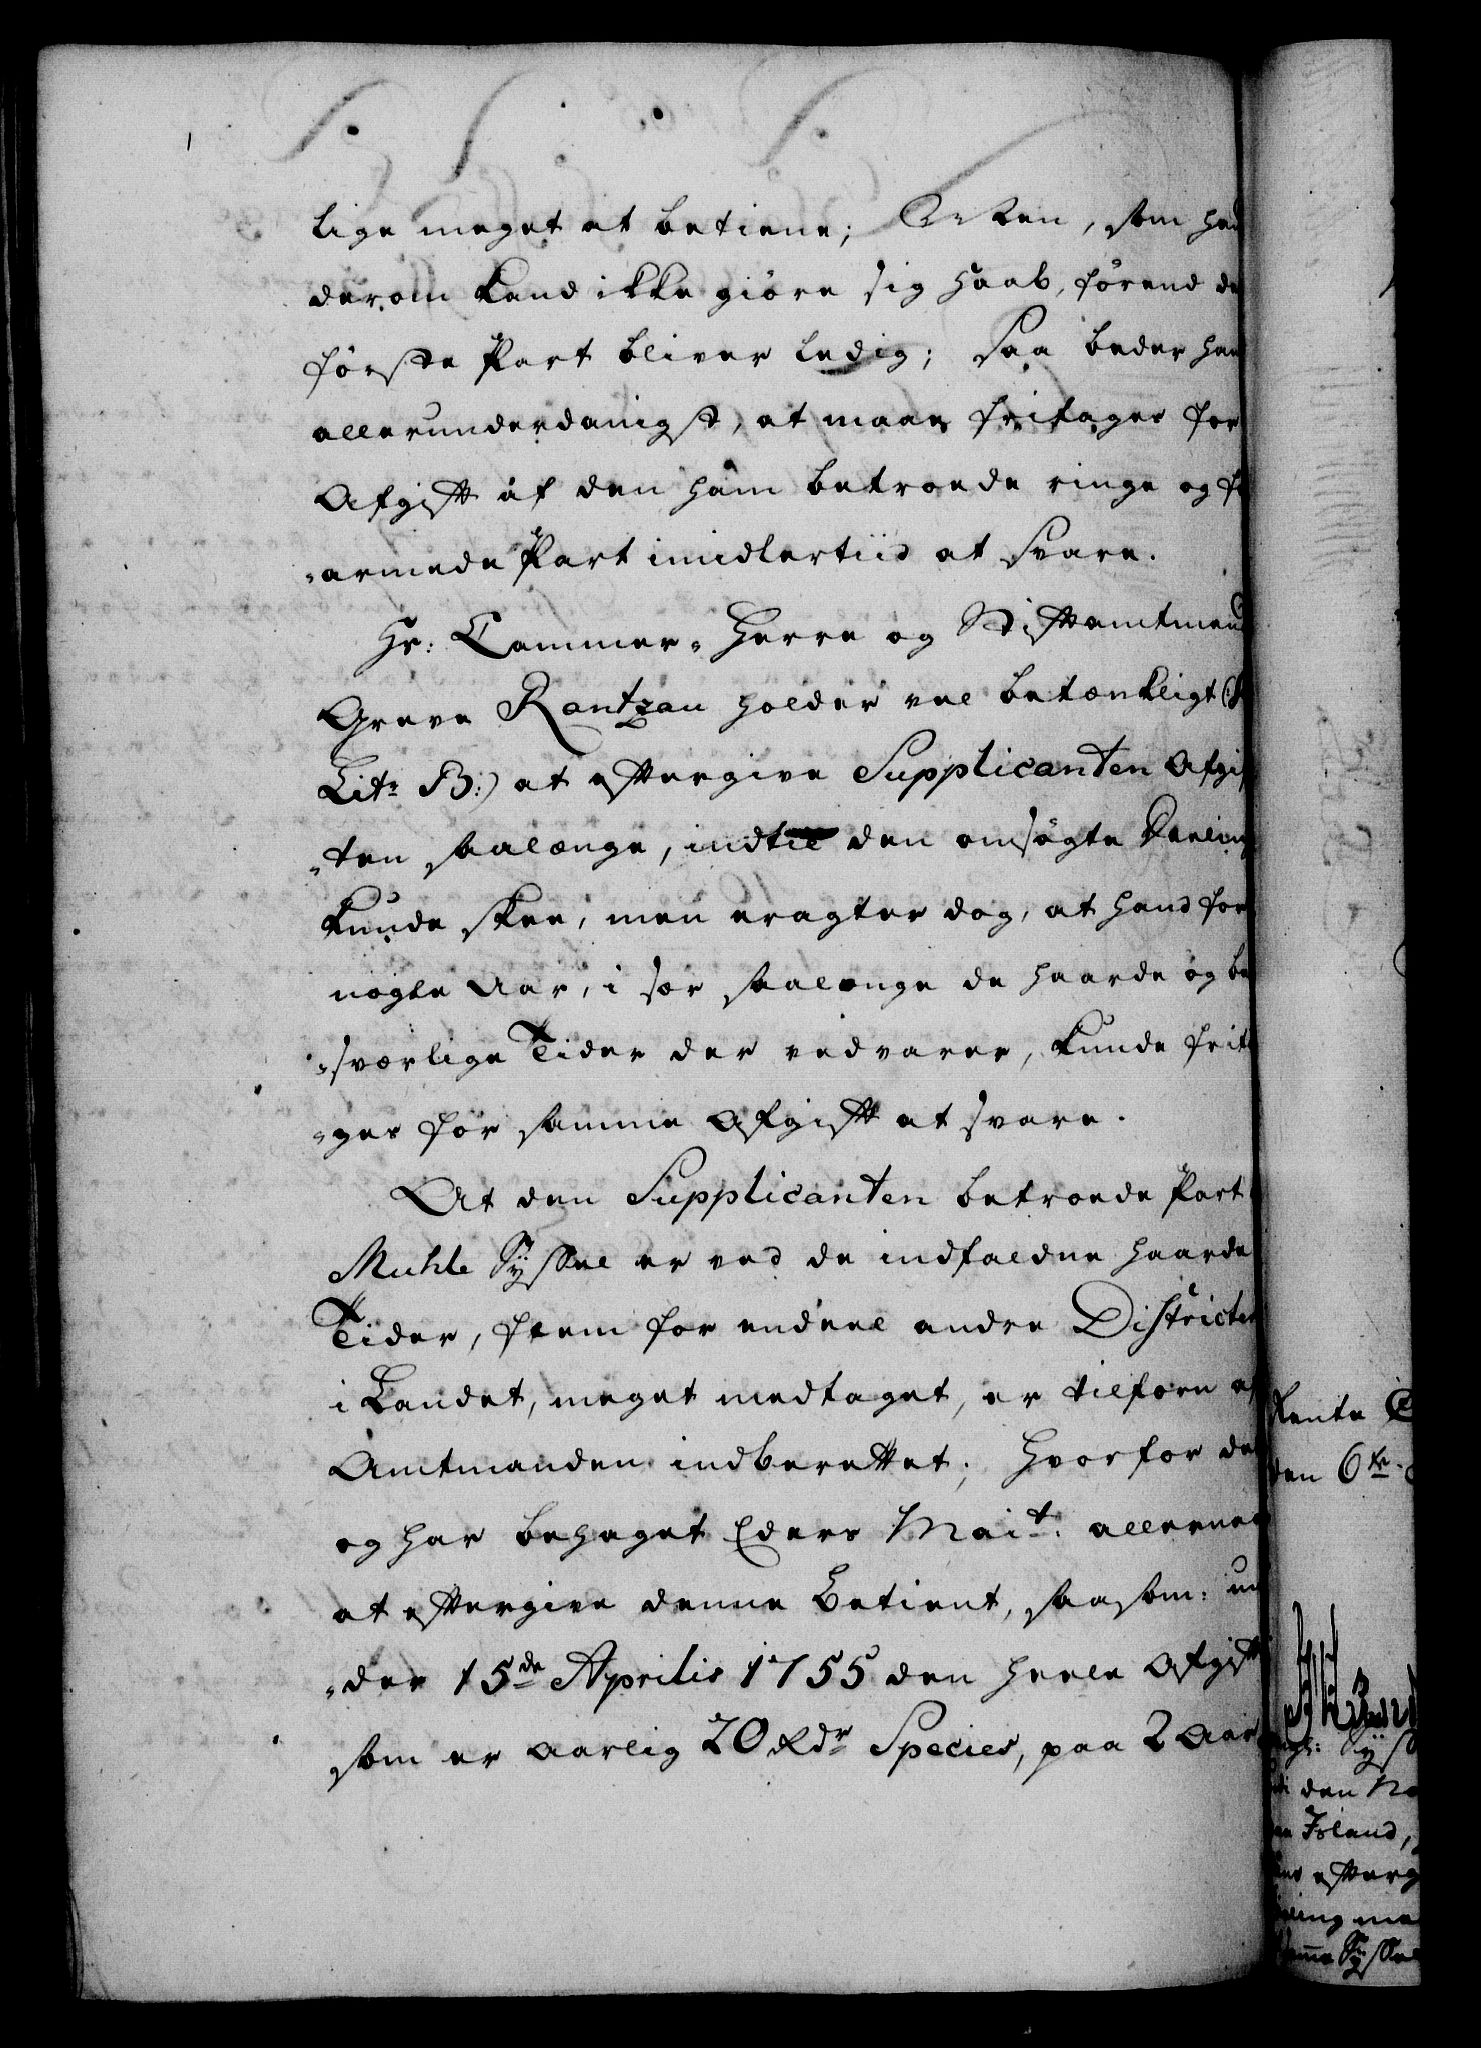 lige meget at betiene; Men, som hand
derom kand ikke giöre sig Haab, förend de
förste Part bliver ledig; Saa beder hand
allerunderdanigst, at maae fritages for
Afgift af den ham betroede ringe og for
-armede Part imidlertiid at svare.
Hr: Cammer-Herre og Stiftamtmand
Greve Rantzau holder vel betænkligt (:
Litr B:) at eftergive Supplicanten Afgif
-ten saalænge, indtil den omsögte Deeling
kunde skee, men eragter dog, at hand for
nogle Aar, i sær saalænge de haarde og be
-sværlige Tider der vedvarer, kunde frita
-ges for samme Afgift at svare.
At den Supplicanten betroede Part
Muhle Syssel er ved de indfaldne haarde
Tider, frem for endeel andre Districter
i Landet, meget medtaget, er tilforn af
Amtmanden indberettet; Hvorfor det
og har behaget Eders Mait: allernaa
at eftergive denne Betient, saasom: un
-der 15de Aprilis 1755 den heele Afgift
som er aarlig 20 Rdr Species, paa 2 Aar
Rente
den 6te
Syss
den No
Island,
efterg
ling ma
Syssel